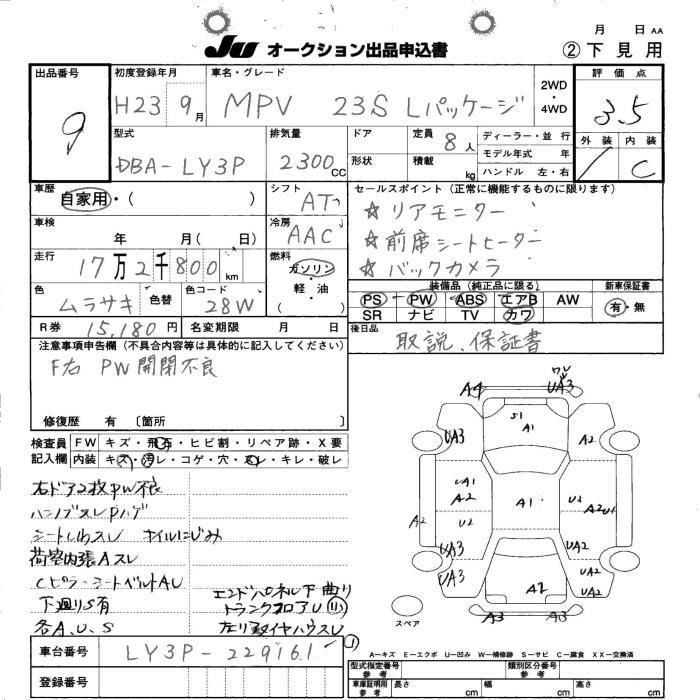 月 日 AA
JU オークション出品申込書 ②下見用
出品番号 9
初度登録年月 H23 9月
車名・グレード MPV 23S Lパッケージ
2WD・4WD
評価点 3.5
外装 内装 C
型式 DBA-LY3P
排気量 2300cc
ドア 形状
定員 8人
積載 kg
ディーラー・並行
モデル年式 年
ハンドル 左・右
車歴 自家用・( )
シフト AT
セールスポイント(正常に機能するものに限ります)
☆リアモニター
☆前席シートヒーター
☆バックカメラ
車検 年 月( 日)
冷房 AAC
走行 17万2千800km
燃料 ガソリン・軽油・( )
色 ムラサキ 色替 色コード 28W
装備品(純正品に限る) 新車保証書
PS PW ABS エアB AW 有・無
SR ナビ TV カワ
R券 15,180円 名変期限 月 日
後日品 取説、保証書
注意事項申告欄(不具合内容等は具体的に記入してください)
F右 PW開閉不良
修復歴 有〔箇所
検査員記入欄
FW キズ・飛石・ヒビ割・リペア跡・X要
内装 キズ・汚レ・コゲ・穴・スレ・キレ・破レ
右ドア2枚PW不良
シートしわスレ
荷室内張Aスレ
CピラーシートベルトAU
下廻りS有
各A、U、S
エンドパネル下曲り
トランクフロアU
A4 UA3
S1 A1
UA3 A2
UA1 A2 A1 U2 A2
A2 U2
UA3 UA2
UA3 A2 UA2
UA2
A3 A3
スペア
A―キズ E―エクボ U―凹み W―補修跡 S―サビ C―腐食 XX―交換済
車台番号 LY3P-229161
登録番号
型式指定番号 類別区分番号
車庫証明用参考 長さ cm 幅 cm 高さ cm